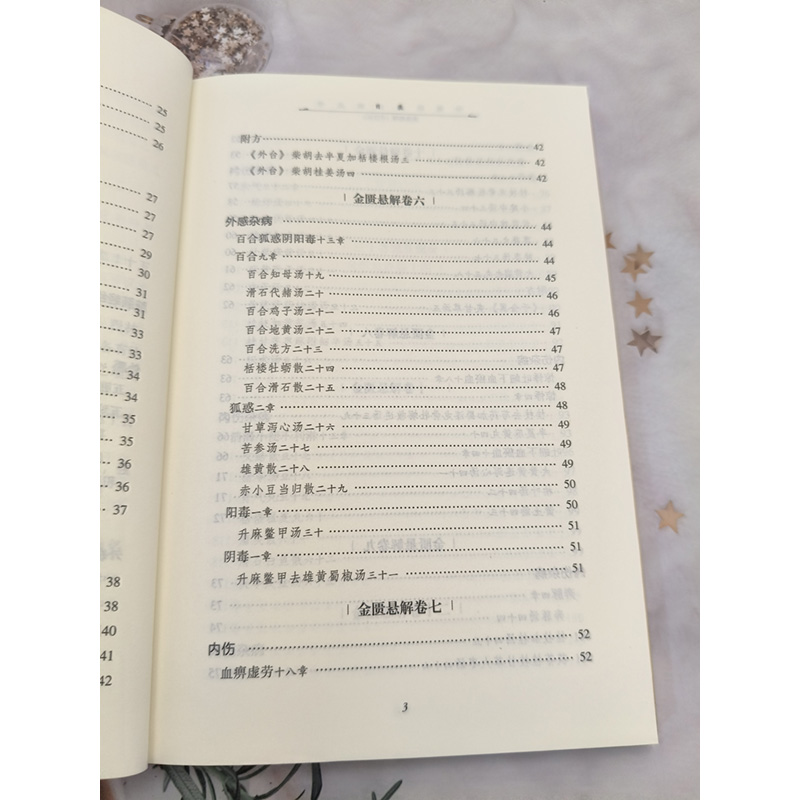 25
25
26
27
27
29
29
30
31
31
33
33
34
35
36
36
37
38
38
40
41
42
目录
附方 42
《外台》柴胡去半夏加栝楼根汤三 42
《外台》柴胡桂姜汤四 42
金匮悬解卷六
外感杂病 44
百合狐惑阴阳毒十三章 44
百合九章 44
百合知母汤十九 45
滑石代赭汤二十 46
百合鸡子汤二十一 46
百合地黄汤二十二 47
百合洗方二十三 47
栝楼牡蛎散二十四 47
百合滑石散二十五 48
狐惑二章 48
甘草泻心汤二十六 49
苦参汤二十七 49
雄黄散二十八 49
赤小豆当归散二十九 50
阳毒一章 50
升麻鳖甲汤三十 51
阴毒一章 51
升麻鳖甲去雄黄蜀椒汤三十一 51
金匮悬解卷七
内伤 52
血痹虚劳十八章 52
3